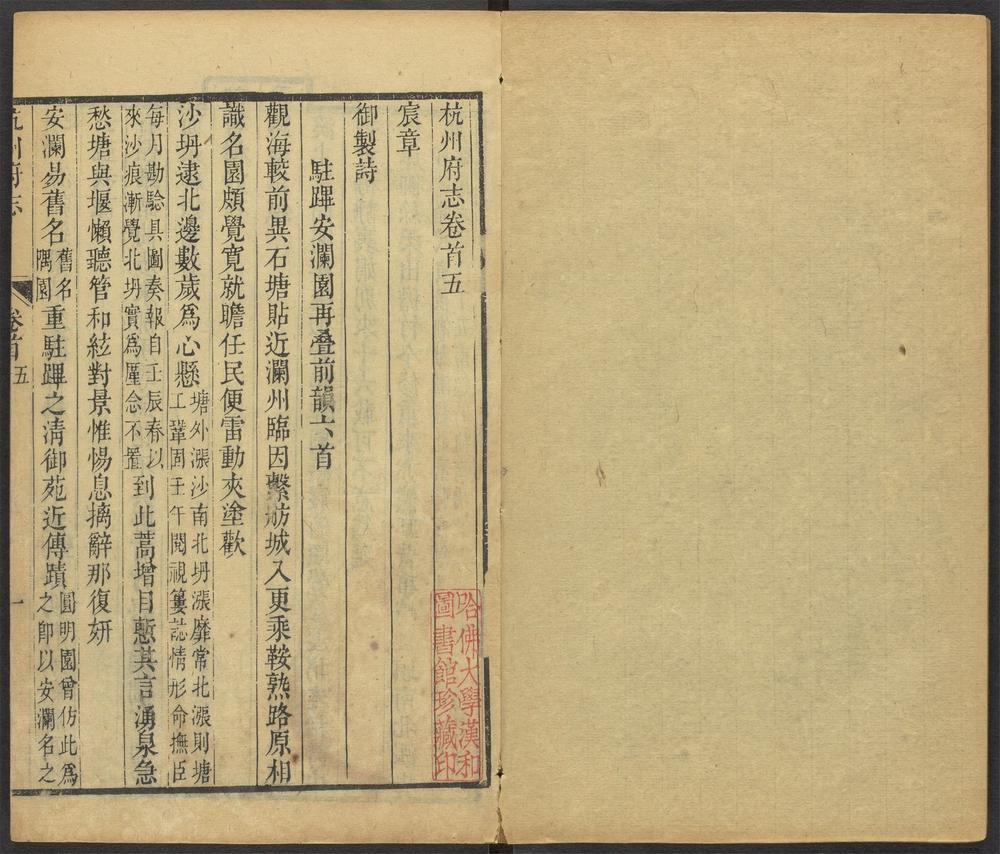 杭州府志卷首五
宸章
御製詩
駐蹕安瀾園再叠前韻六首
觀海較前異石塘貼近瀾州臨因繫舫城入更乘鞍熟路原相
識名園頗覺寬就瞻任民便雷動夾塗歡
沙坍逮北邊數歲為心懸塘外漲沙南北坍漲靡常北漲則塘
工鞏固壬午閱視簍誌情形命撫臣
每月勘驗具圖奏報自壬辰春以
來沙痕漸覺北坍實為厪念不置到此蒿增目慙其言湧泉急
愁塘與堰懶聽管和絃對景惟惕息摛辭那復妍
安瀾易舊名舊名
隅園重駐蹕之清御苑近傳蹟圓明園曾仿此為
之即以安瀾名之
杭州府志
卷首五
一
哈佛大學漢和
圖書館珍藏印